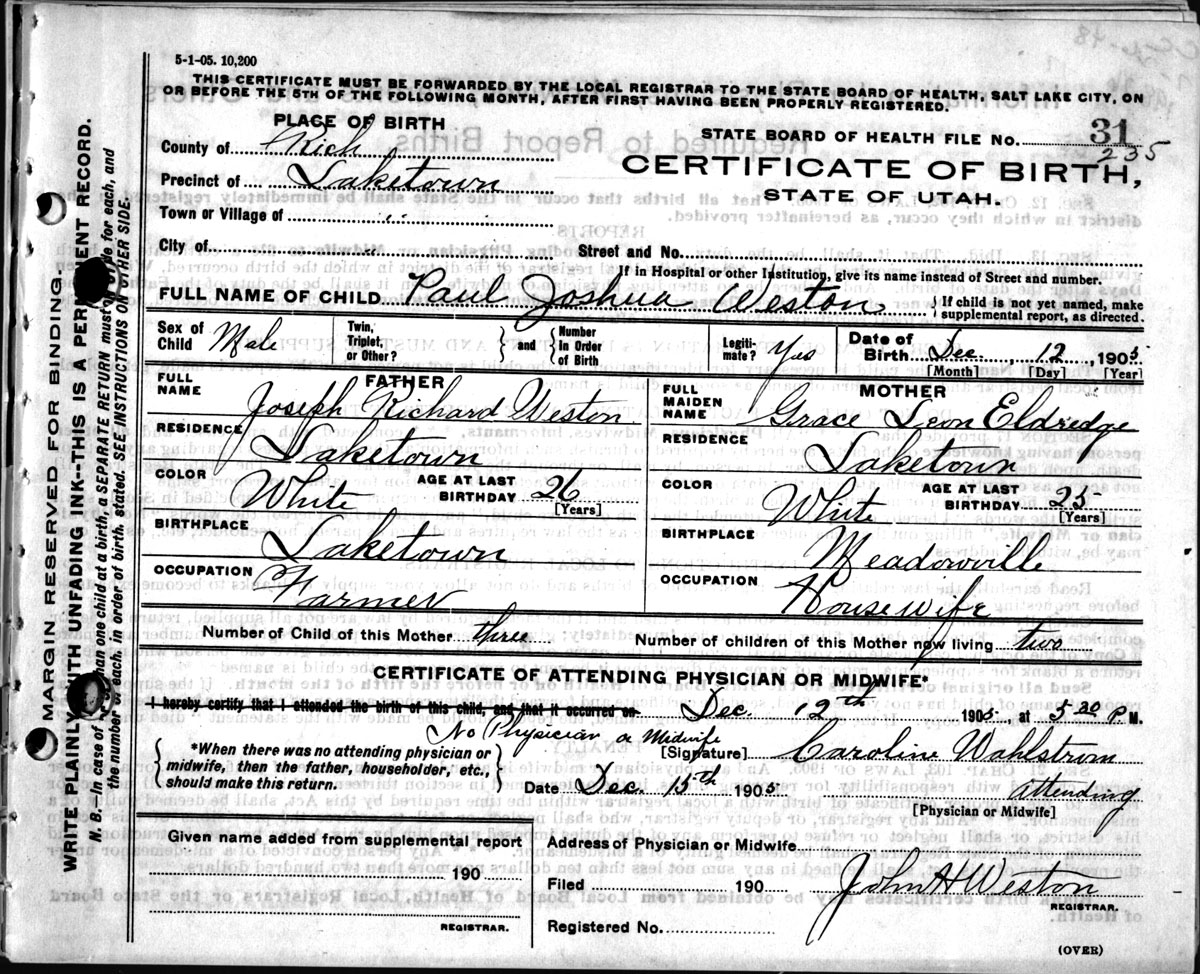 5-1-05. 10,200
THIS CERTIFICATE MUST BE FORWARDED BY THE LOCAL REGISTRAR TO THE STATE BOARD OF HEALTH, SALT LAKE CITY, ON
OR BEFORE THE 5TH OF THE FOLLOWING MONTH, AFTER FIRST HAVING BEEN PROPERLY REGISTERED.
PLACE OF BIRTH
County of Rich
Precinct of Laketown
Town or Village of "
City of
STATE BOARD OF HEALTH FILE NO. 31
235
CERTIFICATE OF BIRTH,
STATE OF UTAH.
Street and No.
If in Hospital or other Institution, give its name instead of Street and number.
FULL NAME OF CHILD Paul Joshua Weston
If child is not yet named, make
supplemental report, as directed.
Sex of Child Male
Twin, Triplet, or Other?
and
Number In Order of Birth
Legiti-mate? Yes
Date of Birth Dec. , 12 , 1905
[Month] [Day] [Year]
FATHER
FULL NAME Joseph Richard Weston
RESIDENCE Laketown
COLOR White
AGE AT LAST BIRTHDAY 26
[Years]
BIRTHPLACE Laketown
OCCUPATION Farmer
MOTHER
FULL MAIDEN NAME Grace Leon Eldredge
RESIDENCE Laketown
COLOR White
AGE AT LAST BIRTHDAY 25
[Years]
BIRTHPLACE Meadowville
OCCUPATION Housewife
Number of Child of this Mother three
Number of children of this Mother now living two
CERTIFICATE OF ATTENDING PHYSICIAN OR MIDWIFE*
I hereby certify that I attended the birth of this child, and that it occurred on Dec. 12th 1905, at 5 30 P. M.
No Physician or Midwife
*When there was no attending physician or
midwife, then the father, householder, etc.,
should make this return.
[Signature] Caroline Wahlstrom
Date Dec. 15th 1905
attending
[Physician or Midwife]
Given name added from supplemental report
190
REGISTRAR.
Address of Physician or Midwife
Filed 190
John H Weston
REGISTRAR.
Registered No.
(OVER)
MARGIN RESERVED FOR BINDING
WRITE PLAINLY WITH UNFADING INK--THIS IS A PERMANENT RECORD.
N. B.--In case of more than one child at a birth, a SEPARATE RETURN must be made for each, and
the number of each, in order of birth, stated. SEE INSTRUCTIONS ON OTHER SIDE.